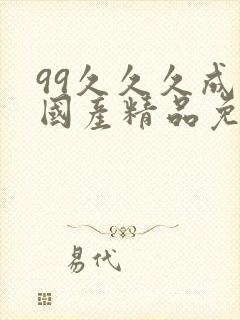 99久久久成
國產精品免
易代